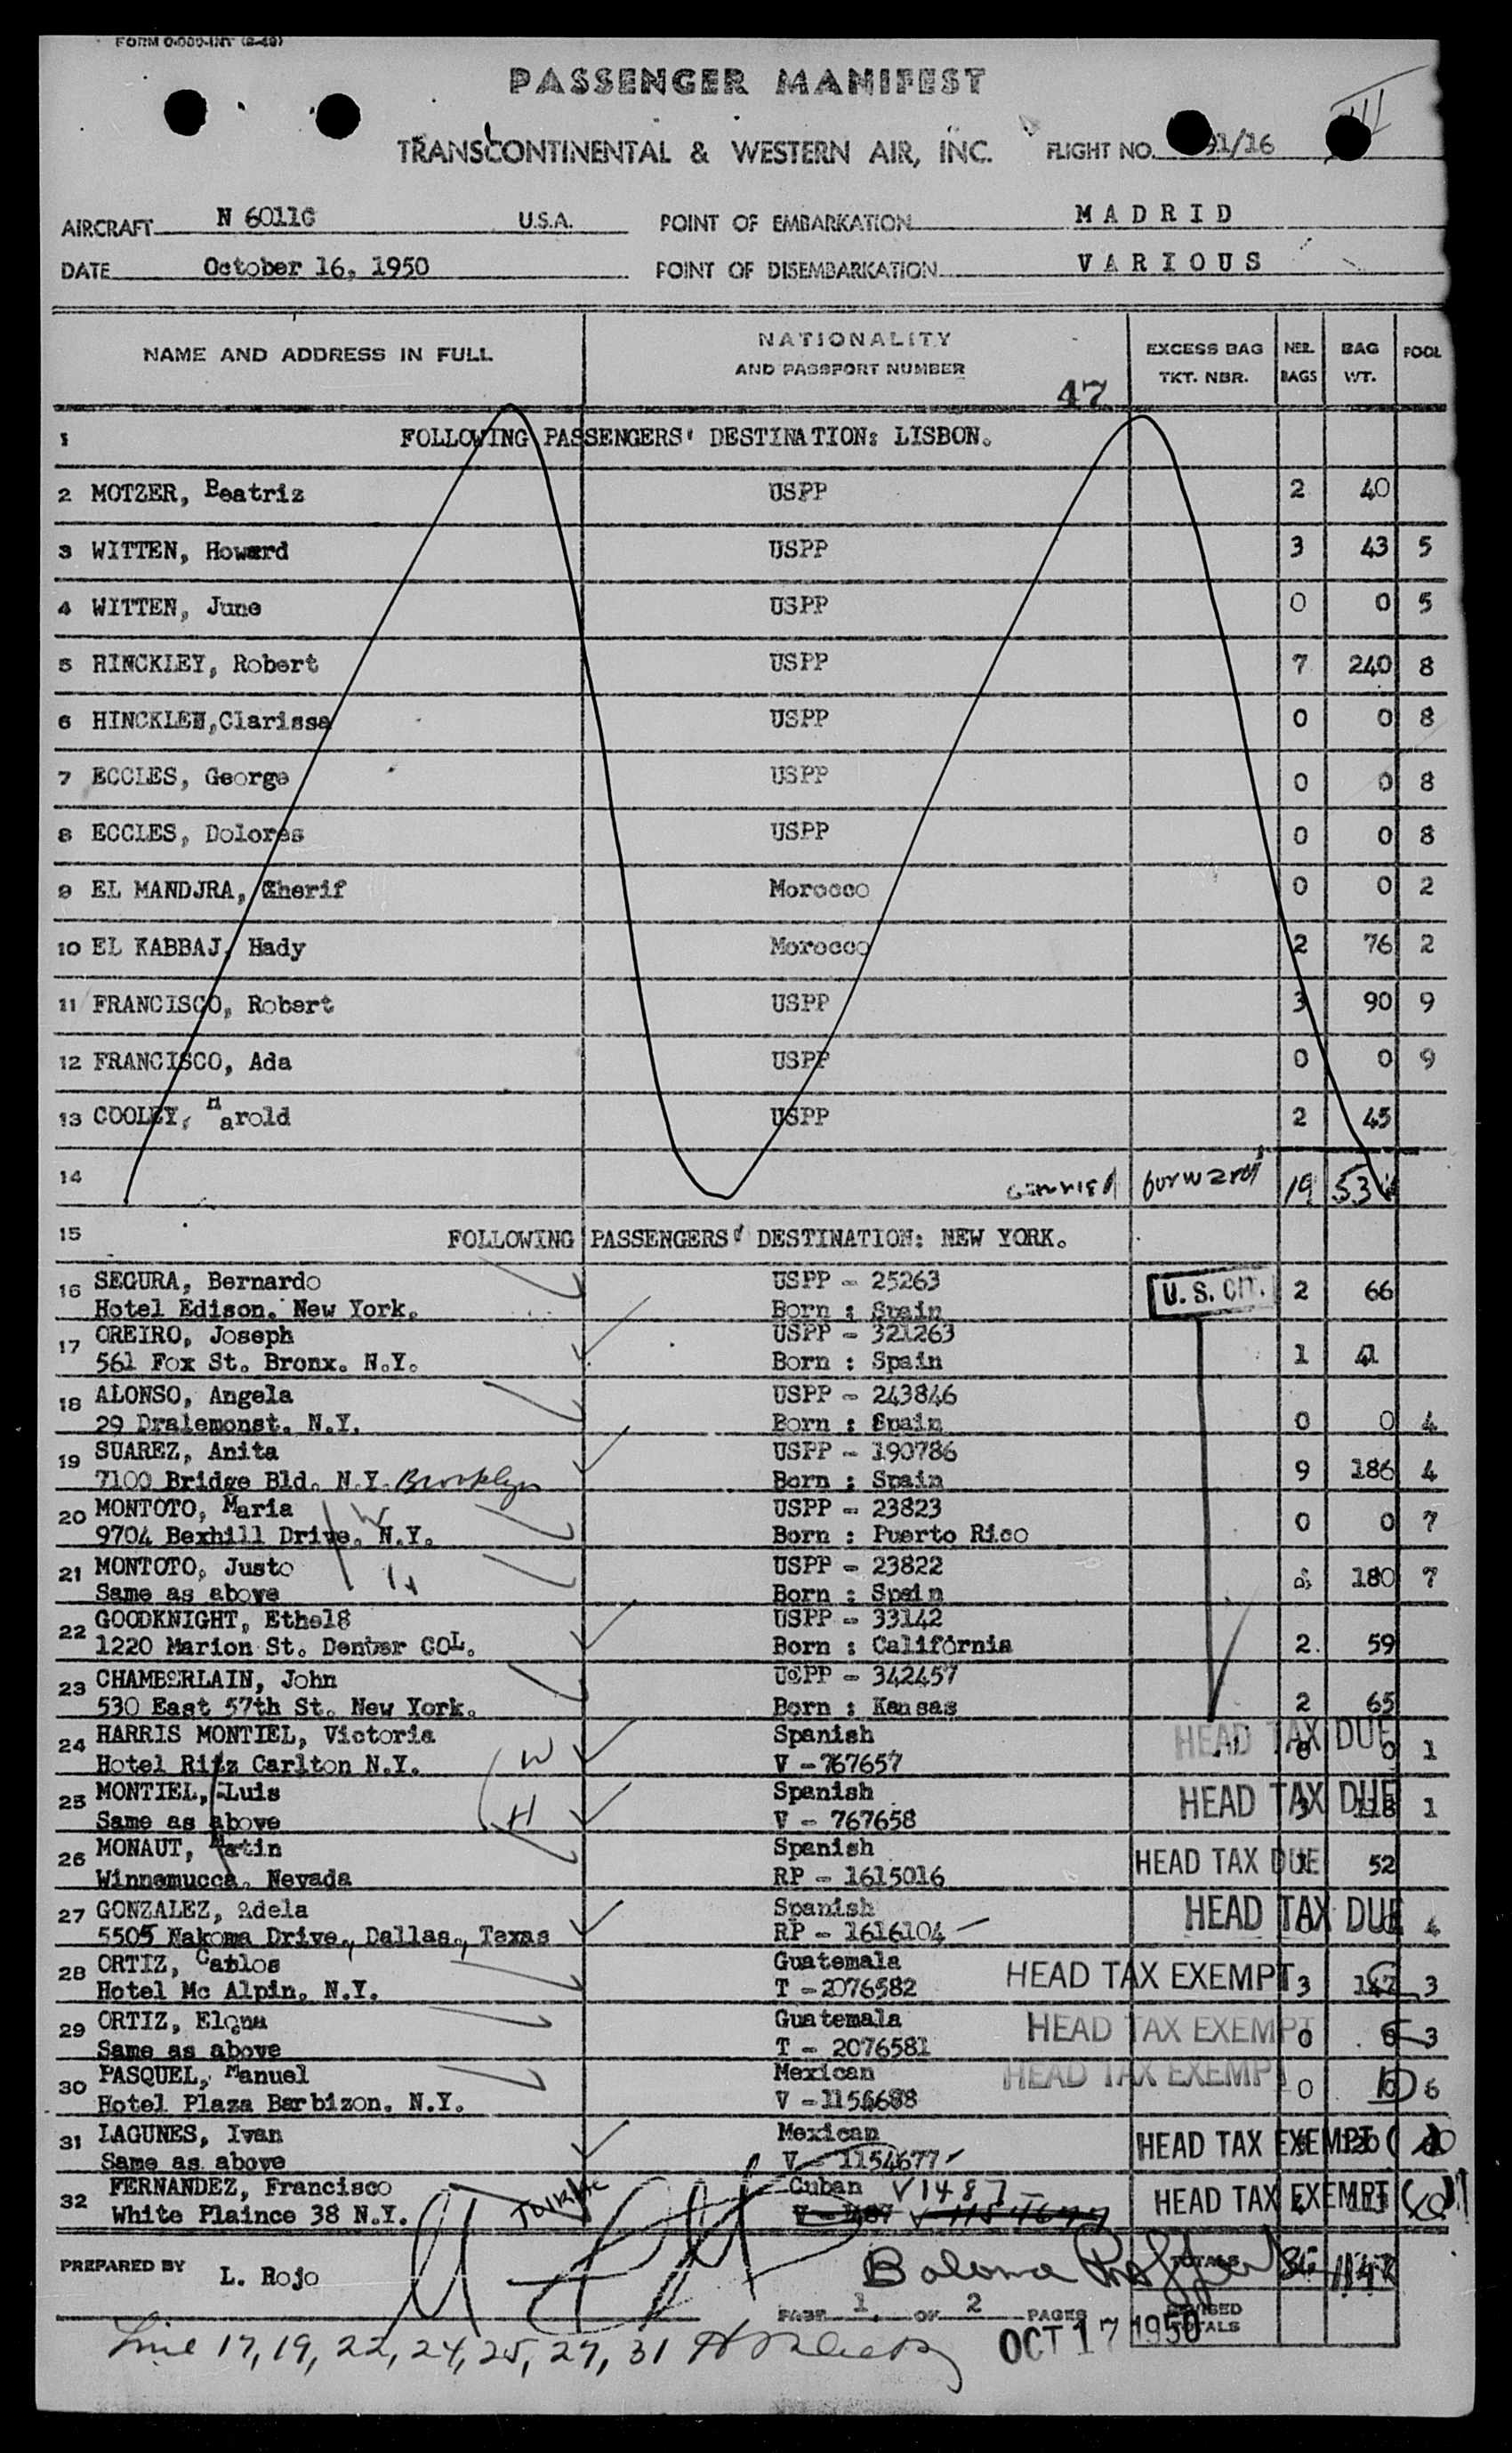 PASSENGER MANIFEST
TRANSCONTINENTAL & WESTERN AIR, INC. FLIGHT NO. 91/16
AIRCRAFT N 6011C U.S.A. POINT OF EMBARKATION MADRID
DATE October 16, 1950 POINT OF DISEMBARKATION VARIOUS
NAME AND ADDRESS IN FULL NATIONALITY AND PASSPORT NUMBER 47 EXCESS BAG TKT. NBR. NBR. BAGS BAG WT. POOL
1 FOLLOWING PASSENGERS' DESTINATION: LISBON.
2 MOTZER, Beatriz USPP 2 40
3 WITTEN, Howard USPP 3 43 5
4 WITTEN, June USPP 0 0 5
5 HINCKLEY, Robert USPP 7 240 8
6 HINCKLEW,Clarissa USPP 0 0 8
7 ECCLES, George USPP 0 0 8
8 ECCLES, Dolores USPP 0 0 8
9 EL MANDJRA, Cherif Morocco 0 0 2
10 EL KABBAJ, Hady Morocco 2 76 2
11 FRANCISCO, Robert USPP 3 90 9
12 FRANCISCO, Ada USPP 0 0 9
13 COOLEY, Harold USPP 2 45
14 carried forward 19 534
15 FOLLOWING PASSENGERS' DESTINATION: NEW YORK.
16 SEGURA, Bernardo USPP - 25263 U. S. CIT. 2 66
Hotel Edison. New York. Born : Spain
17 OREIRO, Joseph USPP - 321263 1 41
561 Fox St. Bronx. N.Y. Born : Spain
18 ALONSO, Angela USPP - 243846 0 0 4
29 Dralemonst. N.Y. Born : Spain
19 SUAREZ, Anita USPP - 190786 9 186 4
7100 Bridge Bld. N.Y. Brooklyn Born : Spain
20 MONTOTO, Maria W USPP - 23823 0 0 7
9704 Bexhill Drive. N.Y. Born : Puerto Rico
21 MONTOTO, Justo H USPP - 23822 180 7
Same as above Born : Spain
22 GOODKNIGHT, Ethel8 USPP - 33142 2 59
1220 Marion St. Denver COL. Born : California
23 CHAMBERLAIN, John USPP - 342457 2 65
530 East 57th St. New York. Born : Kansas
24 HARRIS MONTIEL, Victoria W Spanish HEAD TAX DUE 0 0 1
Hotel Ritz Carlton N.Y. V -767657
25 MONTIEL, Luis H Spanish HEAD TAX DUE 3 118 1
Same as above V - 767658
26 MONAUT, Matin Spanish HEAD TAX DUE 52
Winnemucca. Nevada RP - 1615016
27 GONZALEZ, Adela Spanish HEAD TAX DUE 4
5505 Nakoma Drive, Dallas, Texas RP - 1616104
28 ORTIZ, Carlos Guatemala HEAD TAX EXEMPT 3 3
Hotel Mc Alpin. N.Y. T -2076582
29 ORTIZ, Elena Guatemala HEAD TAX EXEMPT 0 3
Same as above T - 2076581
30 PASQUEL, Manuel Mexican HEAD TAX EXEMPT 0 0 6
Hotel Plaza Barbizon. N.Y. V -1154688
31 LAGUNES, Ivan Mexican HEAD TAX EXEMPT
Same as above V - 1154677
32 FERNANDEZ, Francisco Cuban V1487 HEAD TAX EXEMPT
White Plaince 38 N.Y.
PREPARED BY L. Rojo TOTALS
PAGE 1. OF 2 PAGES REVISED TOTALS
OCT 17 1950
Line 17, 19, 22, 24, 25, 27, 31